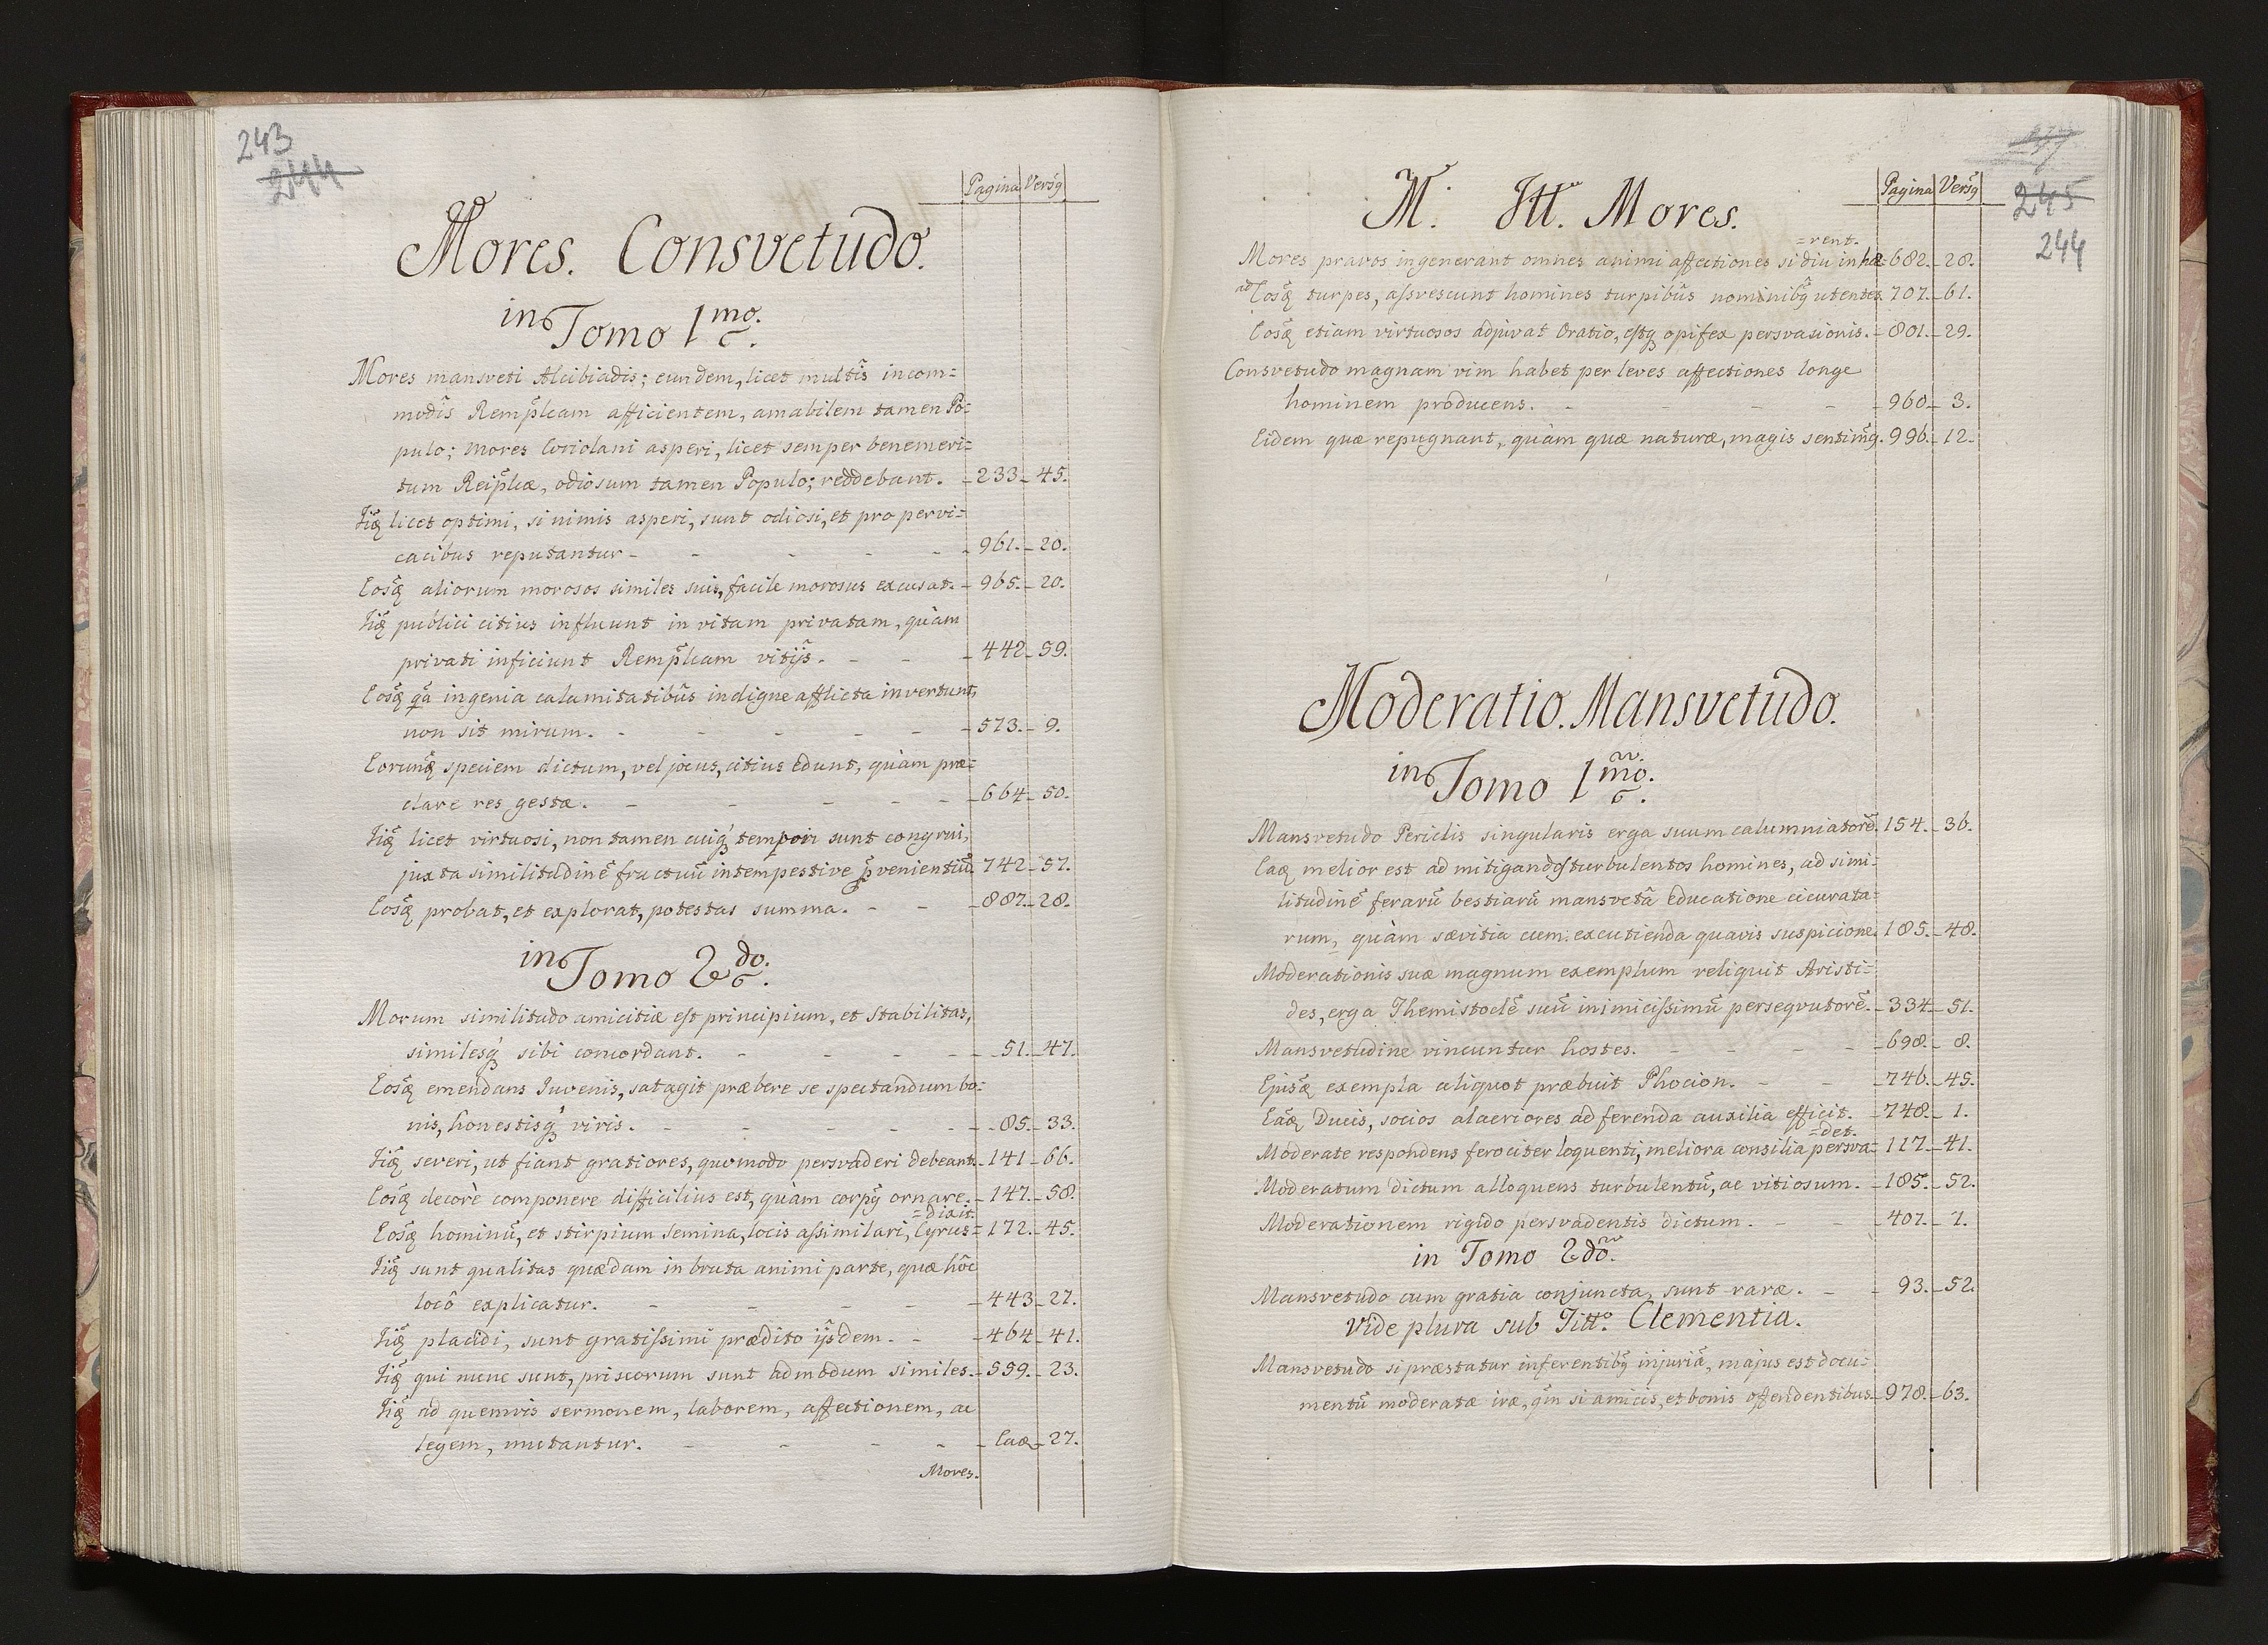 243
244
Pagina Versq̃
Mores. Consvetudo.
in Tomo 1mo.
Mores mansveti Alcibiadis; eundem, licet multis̃ incom=
modis̃ Remp̃lcam afficientem, amabilem tamen Po=
pulo; mores Coriolani asperi, licet semper benemeri=
tum Reip̃lcæ, odiosum tamen Populo; reddebant. - 233. - 45.
licet optimi, si nimis asperi, sunt odiosi, et pro pervi=
cacibus reputantur - - - - - 961. - 20.
Eosq̃ aliorum morosos similes suis, facile morosus excusat. - 965. - 20.
publici citius influunt in vitam privatam, quàm
privati inficiunt Remp̃lcam vitijs. - - - 442. - 59.
Eosq̃ q̃a ingenia calamitatibus̃ indigne afflicta invertunt,
non sit mirum. - - - - - 573. - 9.
Eorunq̃ speciem dictum, vel jocus, citius edunt, quàm præ=
clare res gestæ. - - - - - 664 - 50.
licet virtuosi, non tamen cuiq́ tempori sunt congrui,
juxta similitudinē fructuū intempestive p̃venientiū. 742 - 57.
Eosq̃ probat, et explorat, potestas summa. - - - 887. - 28.
in Tomo 2do.
Morum similitudo amicitiæ est principium, et stabilitas,
similesq́ sibi concordant. - - - - 51. - 47.
Eosq̃ emendans Juvenis, satagit præbere se spectandum bo=
nis, honestisq́ viris. - - - - - 85. - 33.
severi, ut fiant gratiores, quomodo persvaderi debeant. - 141 - 66.
Eosq̃ decorè componere difficilius est, quàm corpq̃ ornare. - 147. - 58.
= dixit.
Eosq̃ hominū, et stirpium semina, locis assimilari, Cyrus = 172. - 45.
sunt qualitas quædam in bruta animi parte, quæ hôc
locô explicatur. - - - - - 443 - 27.
placidi, sunt gratissimi prædito ijsdem. - - 464 - 41.
qui nunc sunt, priscorum sunt admodum similes. - 559. - 23.
ad quemvis sermonem, laborem, affectionem, ac
legem, mutantur. - - - - - Eaq̃ - 27.
Mores.
245
244
Pagina Versq̃
M. Tit. Mores.
= rent.
Mores pravos ingenerant omnes animi affectiones si diu inhæ= 682. - 28.
ad Eosq̃ turpes, assvescunt homines turpibus̃ nominibq̃ utentes. 707. - 61.
Eosq̃ etiam virtuosos adjuvat Oratio, estq́ opifex persvasionis. - 801. - 29.
Consvetudo magnam vim habet per leves affectiones longe
hominem producens. - - - - - 960 - 3.
Eidem quæ repugnant, quàm quæ naturæ, magis sentimq̃. 996. - 12.
Moderatio. Mansvetudo.
in Tomo 1mo.
Mansvetudo Periclis singularis erga suum calumniatorē. 154. - 36.
Eaq̃ melior est ad mitigandos turbulentos homines, ad simi=
litudinē ferarū bestiarū mansvetâ educatione cicurata=
rum, quàm sævitia cum excutienda quavis suspicione. 185. - 48.
Moderationis suæ magnum exemplum reliquit Aristi=
des, erga Themistoclē suū inimicissimū perseqvutorē. - 334. - 51.
Mansvetudine vincuntur hostes. - - - - 698. - 8.
Ejusq̃ exempla aliquot præbuit Phocion. - - - 746. - 45.
Eaq̃ Ducis, socios alacriores ad ferenda auxilia efficit. - 748. - 1.
= det.
Moderate respondens ferociter loquenti, meliora consilia persva= 117. - 41.
Moderatum dictum alloquens turbulentū, ac vitiosum. - 185. - 52.
Moderationem rigido persvadentis dictum. - - - 407. - 1.
in Tomo 2do.
Mansvetudo cum gratia conjuncta, sunt raræ. - - 93. - 52.
Vide plura sub Titto. Clementia.
Mansvetudo si præstatur inferentibq̃ injuriā, majus est docu=
mentū moderatæ iræ, q̃m si amicis, et bonis offendentibus - 978. - 63.